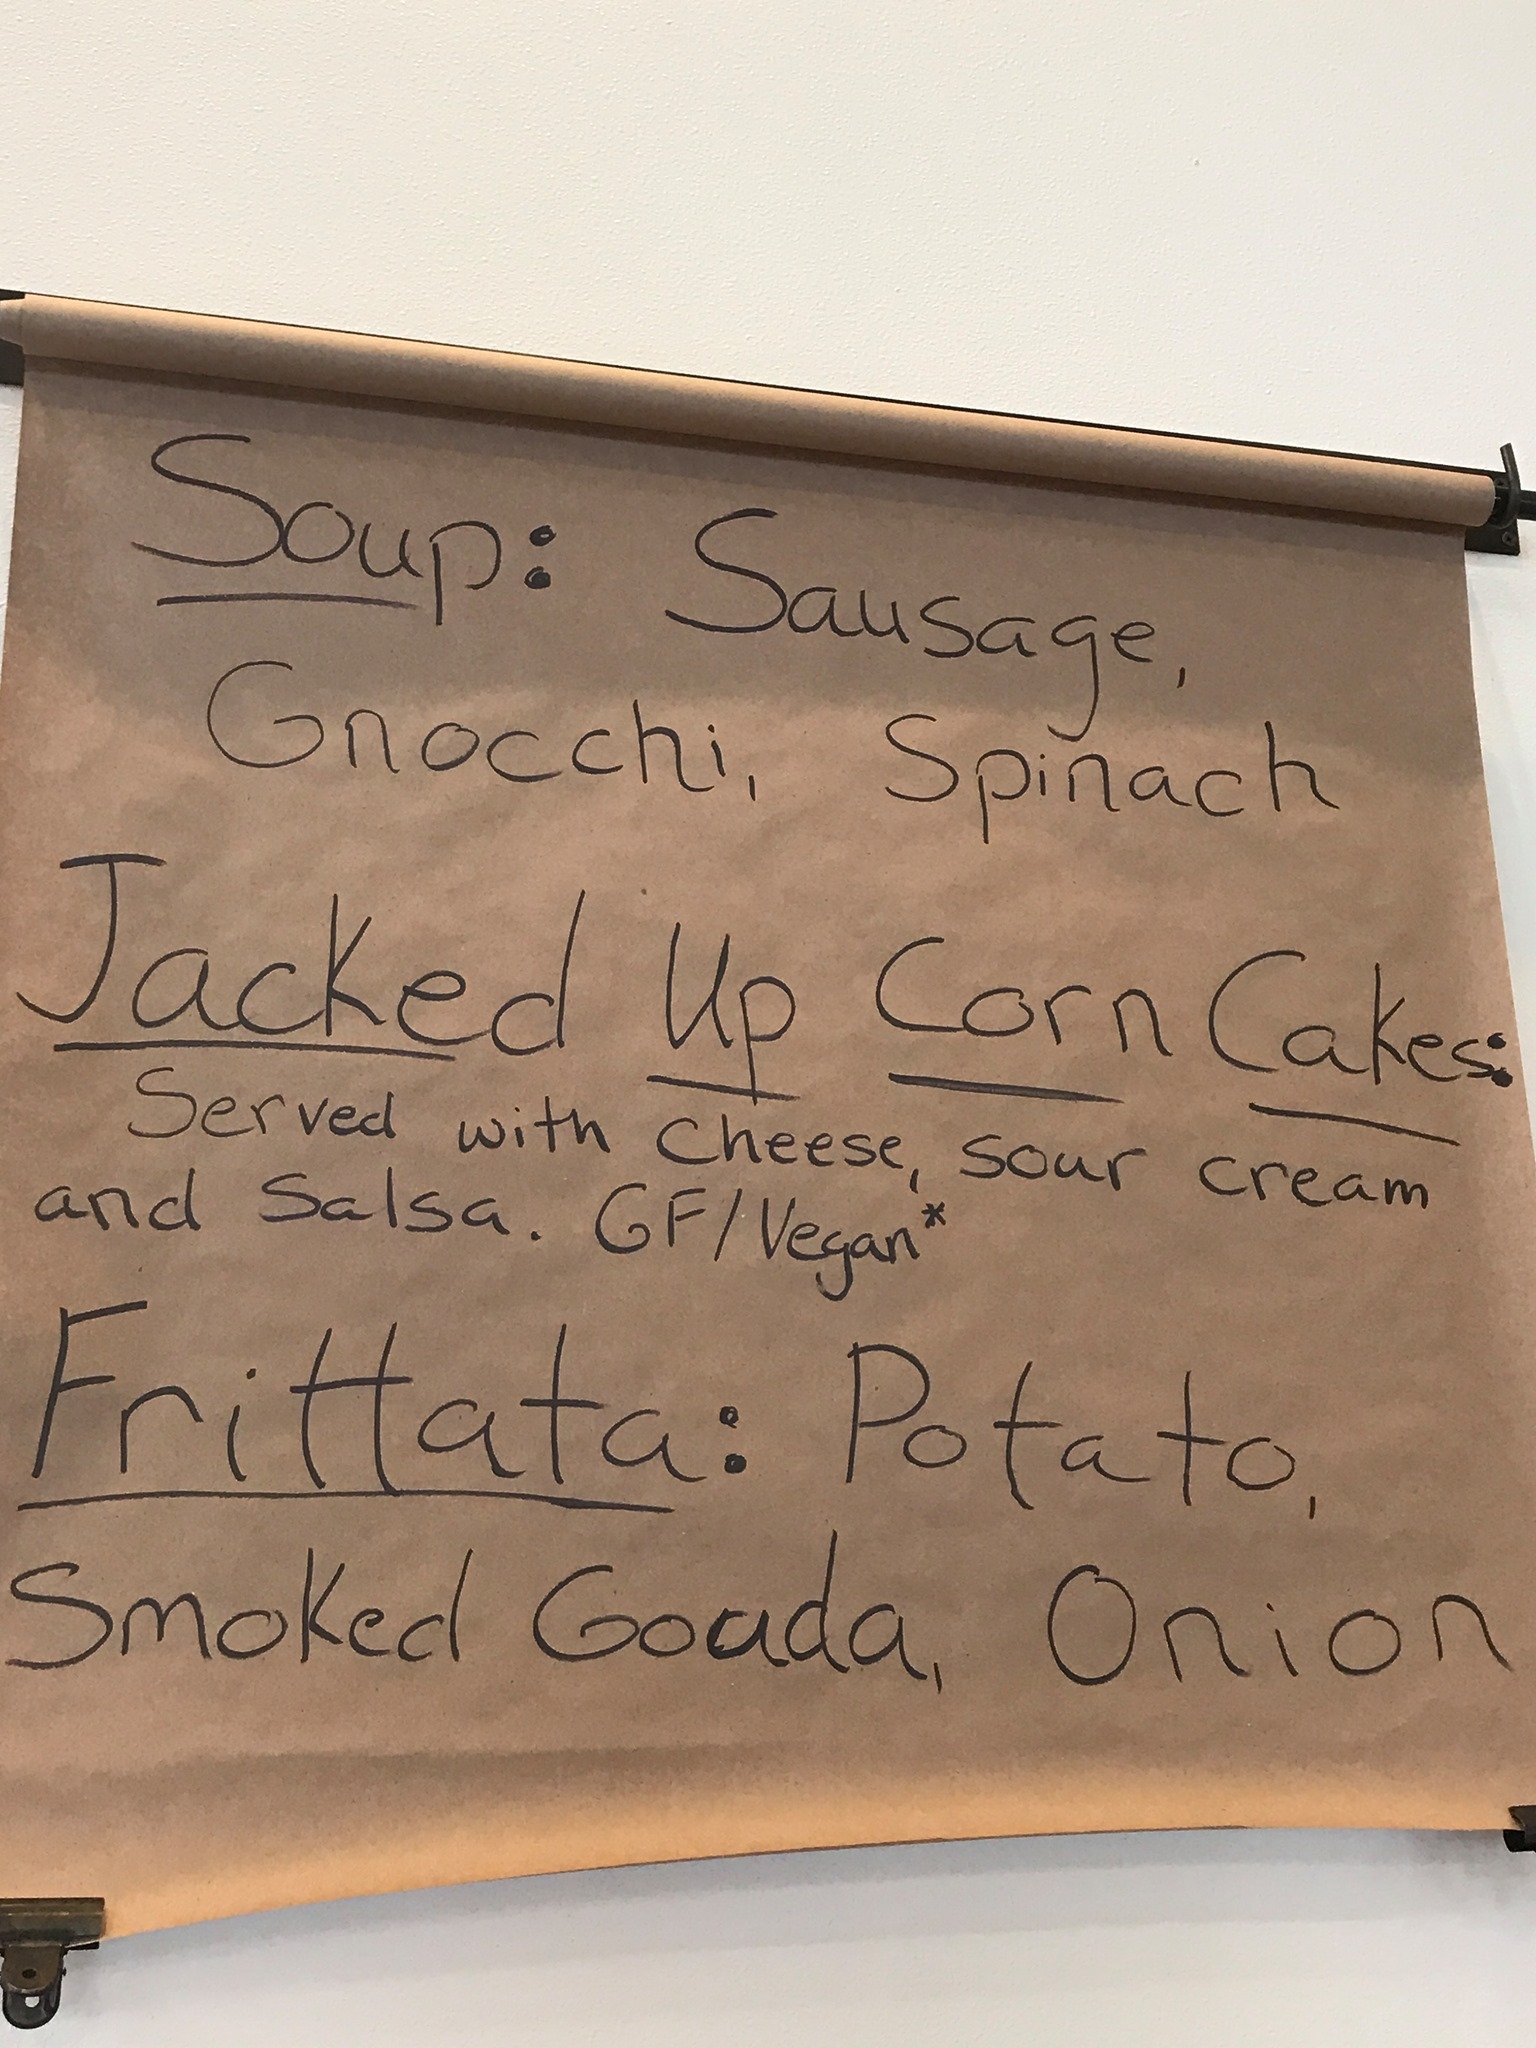 Soup: Sausage,
Gnocchi, Spinach
Jacked Up Corn Cakes:
Served with cheese, sour cream
and salsa. GF/Vegan*
Frittata: Potato,
Smoked Gouda, Onion